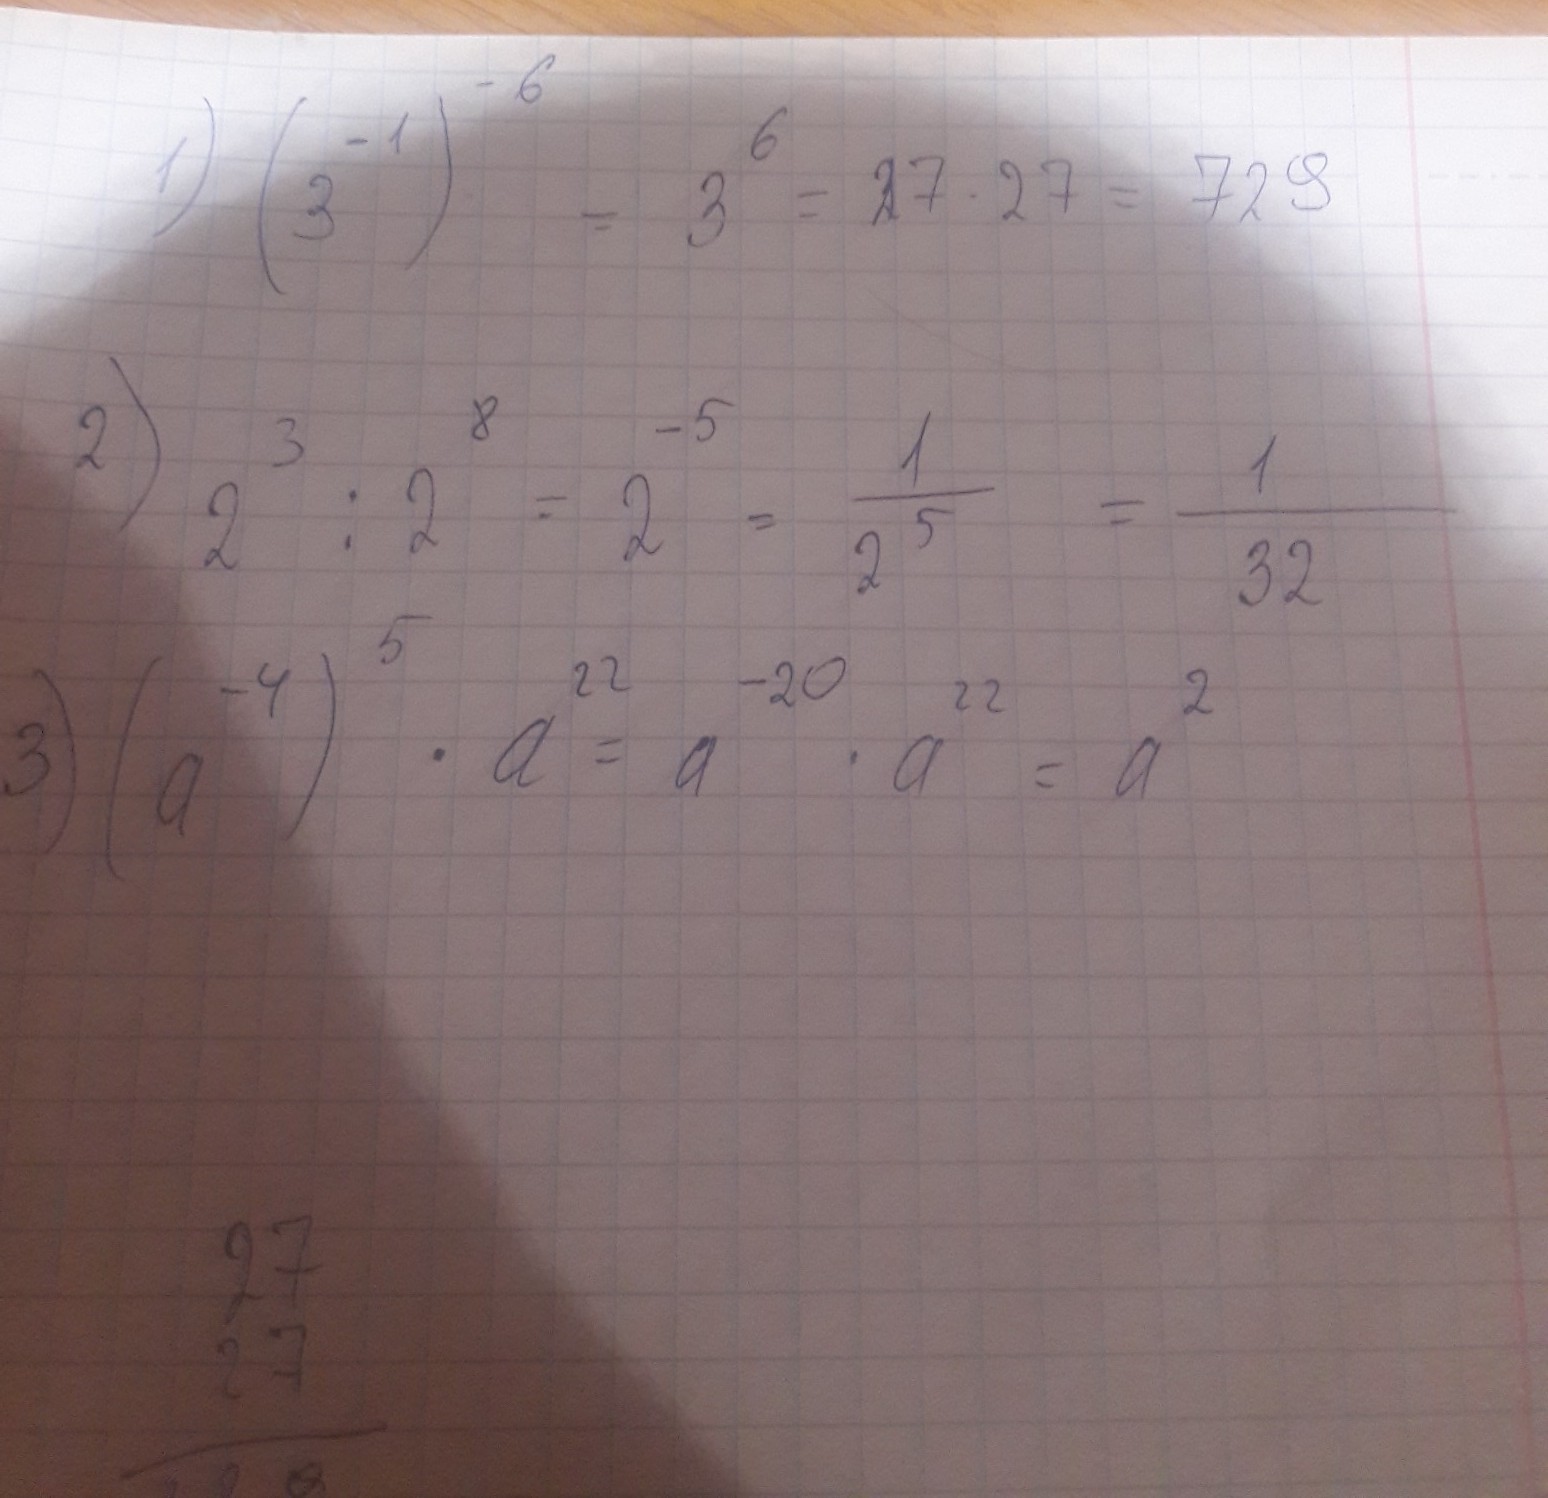 1) (3^-1)^-6 = 3^6 = 27 · 27 = 729
2) 2^3 : 2^8 = 2^-5 = 1/2^5 = 1/32
3) (a^-4)^5 · a^22 = a^-20 · a^22 = a^2
27
27